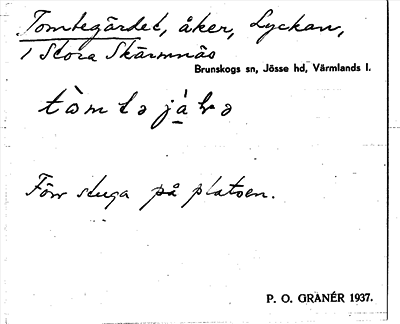 Tomtegärdet, åker, Lyckan,
1 Stora Skärmnäs
Brunskogs sn, Jösse hd, Värmlands l.
Förr stuga på platsen.
P. O. GRANÉR 1937.